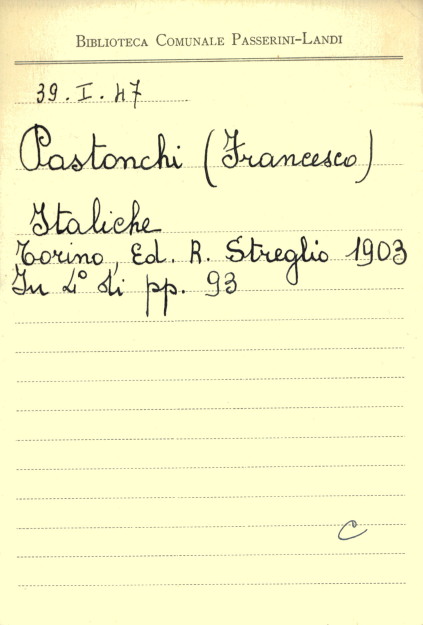 Biblioteca Comunale Passerini-Landi
39. I. 47
Pastonchi (Francesco)
Italiche
Torino, Ed. R. Streglio 1903
In 4° di pp. 93
C